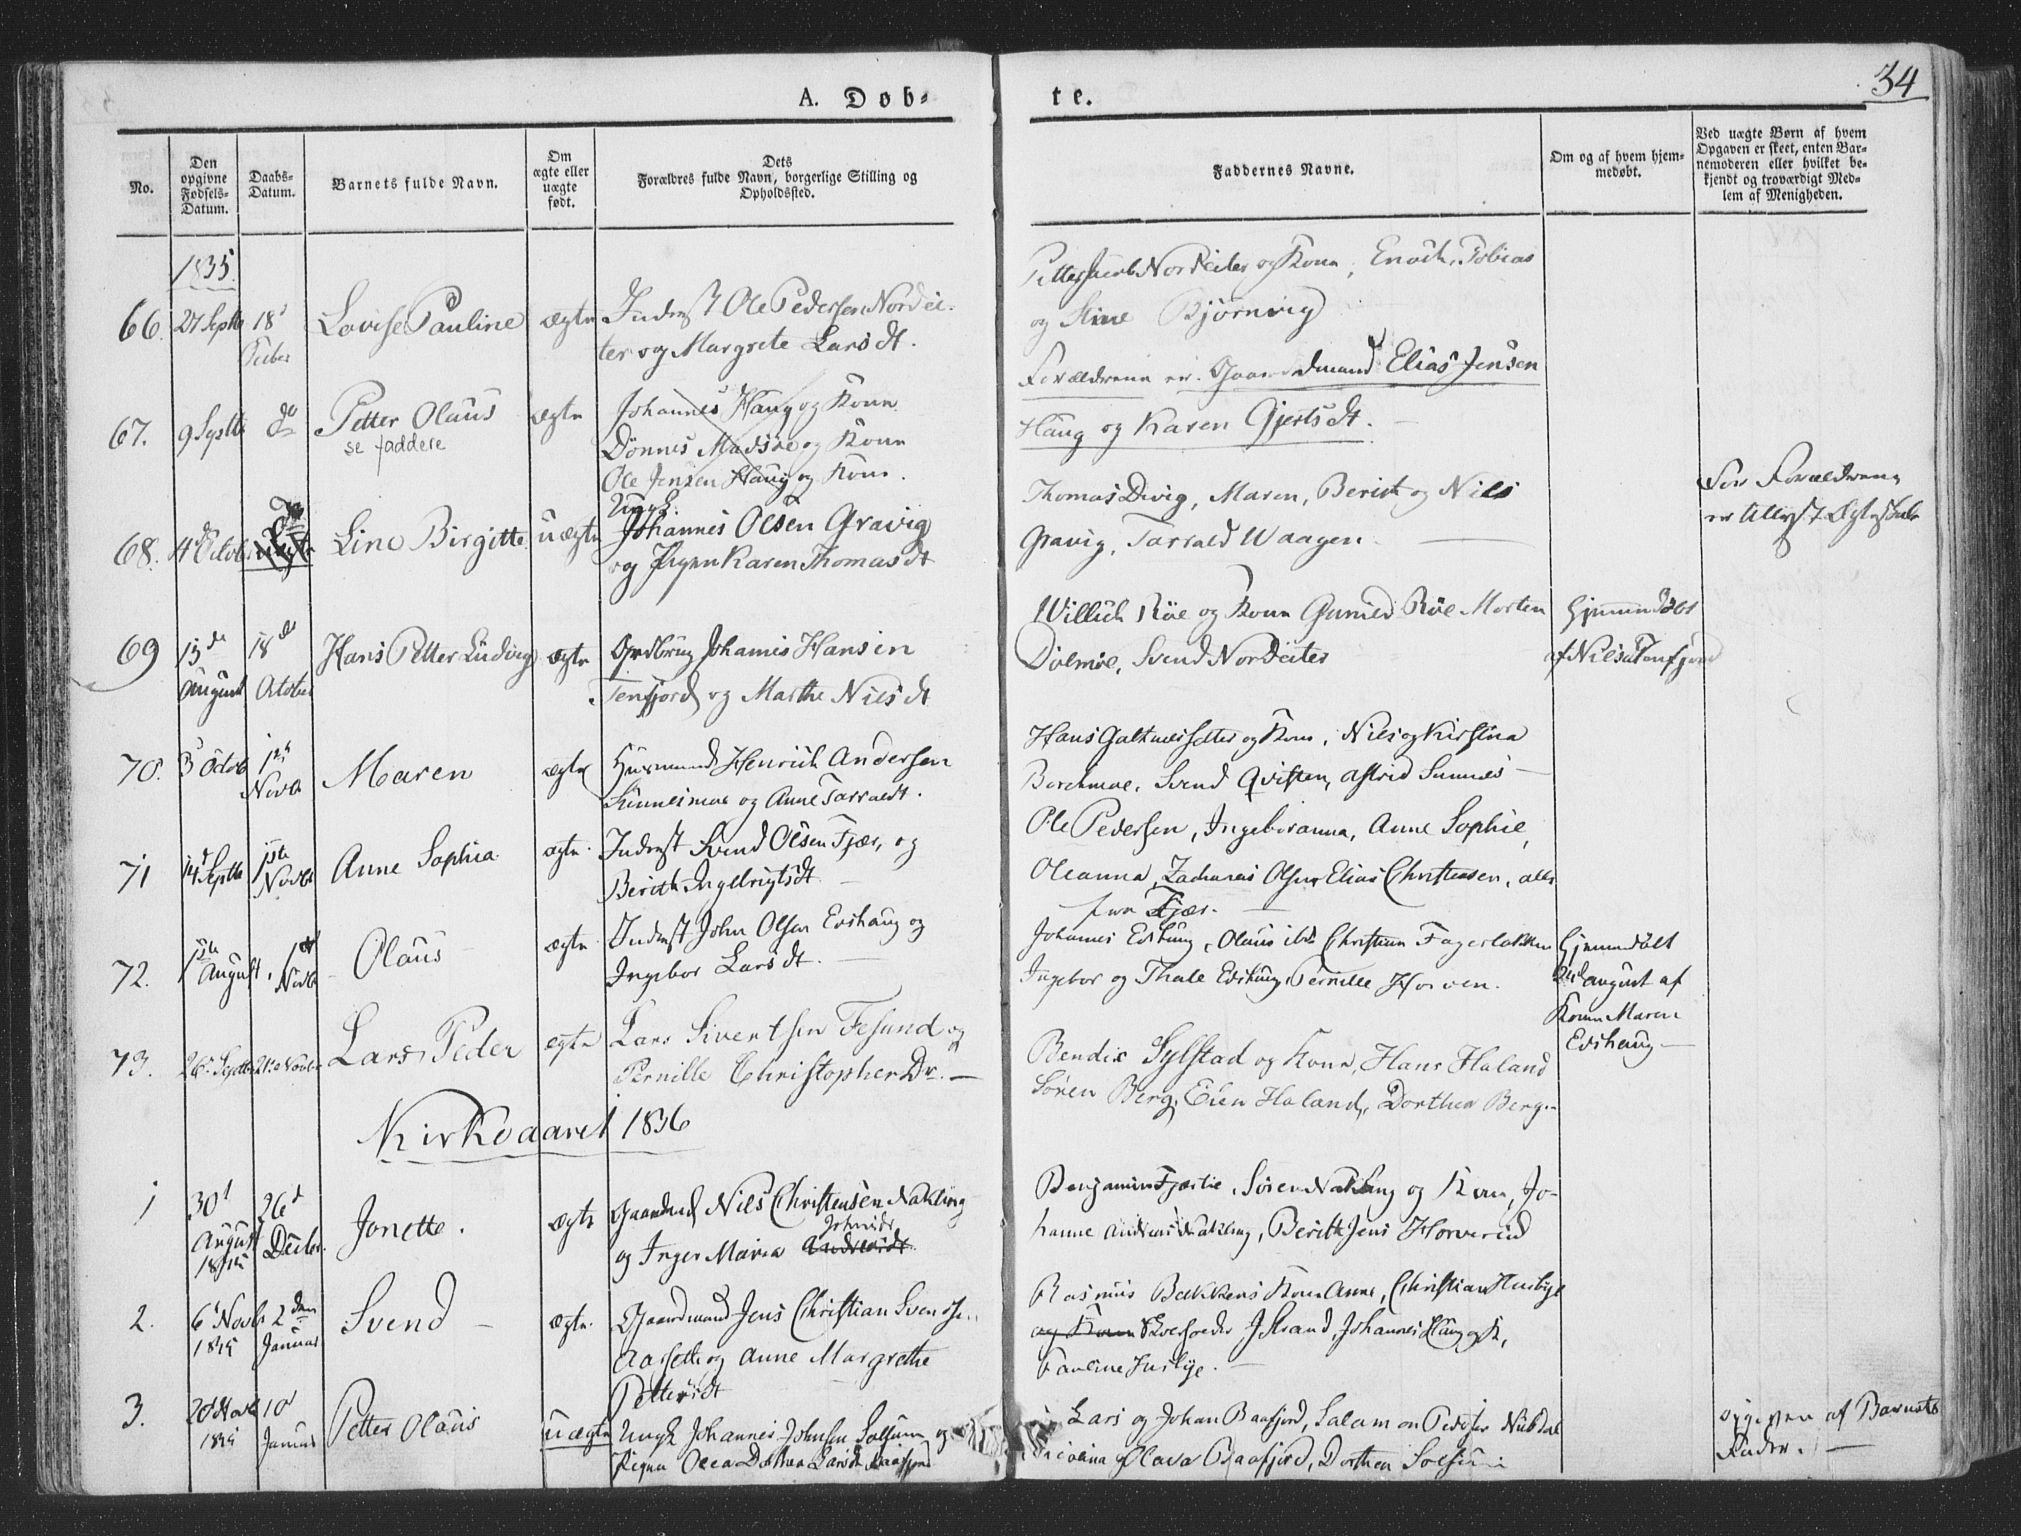 34
A. Døb-
te.
No.
Den
opgivne
Fødsels-
Datum.
Daabs-
Datum.
Barnets fulde Navn.
Om
ægte eller
uægte
født.
Dets
Forældres fulde Navn, borgerlige Stilling og
Opholdssted.
Faddernes Navne.
Om og af hvem hjem-
medøbt.
Ved uægte Børn af hvem
Opgaven er skeet, enten Bar-
nemoderen eller hvilket be-
kjendt og troværdigt Med-
lem af Menigheden.
1835.
66. 27 Septb 18 Lovise Pauline ægte Inderst Ole Pedersen Nordei-
ter og Margrete Larsdt.
Petter Jacob Nordeiter og Kone, Enoch, Tobias
og Stine Bjørnvig
67. 9 Septb do Petter Olaus ægte Johannes Haug og Kone
se faddere
Dønnes Madsøe og Kone
Ole Jensen Haug og Kone.
Forældrene er. Gaardmand Elias Jensen
Haug og Karen Gjertsdt.
68. 4de Octob Line Birgitte uægte Ungk.
Johannes Olsen Gravig
og Pigen Karen Thomasdt
Thomas Devig, Maren, Berith og Nils
Gravig, Tarrald Waagen
For Forældrene
er tillyst Ægteskab
69 13de August 18de October Hans Petter Ludvig ægte Johannes Hansen
Tenfjord og Marthe Nilsdt
Willich Røe og Kone Gunild Røe Morten
Dolmøe, Svend Nordeiter
Hjemmedøbt
af Nils Tenfjord
70. 3 Octob 1ste Novb Maren ægte Husmand Henrich Andersen
og Anne Tarraldt.
Hans og Kone, Nils og Kirstina
Borchmoe, Svend Qvisten, Astrid Sumnes
71 14 Septb 1ste Novb Anne Sophia ægte Inderst Svend Olsen Fjær, og
Berith Ingebrigtsdt
Ole Pedersen, Ingeboranna, Anne Sophie,
Oleanna, Zacharias Olsen Elias Christensen, alle
fra Fjær.
72. 1ste August 1ste Novb Olaus ægte Inderst John Olsen Evshaug og
Ingebor Larsdt.
Johannes Evshaug, Olaus ibd Christian Fagerbakken
Ingebor og Thale Evshaug, Pernille Horven.
Hjemmedøbt
August af
Konen Maren
Evshaug
73. 26 Septb Novbr Lars Peder ægte Lars Sivertsen Fesund og
Pernille ChristopherDr.
Bendix Sylstad og Kone, Hans Haland
Søren Berg, Elen Haland, Dorthea Berg.
Kirkeaaret 1836
1 30t August 1835 26d Decbr. Jonette. ægte Gaardmd Nils Christensen Nakling
og Inger Maria
Benjamin Fjærlie, Søren Nakling og Kone, Jo-
hanne Andreas Nakling, Berith Jens Horvereid
2. 6t Novb 1835 2den Januar Svend ægte. Gaardmand Jens Christian Svends.
Aarseth og Anne Margrethe
Pettersdt
Rasmus Bakkens Kone Anne, Christian Husbye
og Kone Strand Johannes Haug og K,
Pauline Husbye.
3. 20 Novb 1835 10 Januar Petter Olaus uægte Ungk Johannes Johnsen Solsum og
Pigen Olea Dorthea Larsdt Baafjord
Lars og Johan Baafjord, Salamon Peders Nubdal
og Olava Baafjord, Dorthea Solsum
opgiven af Barnets
Fader.